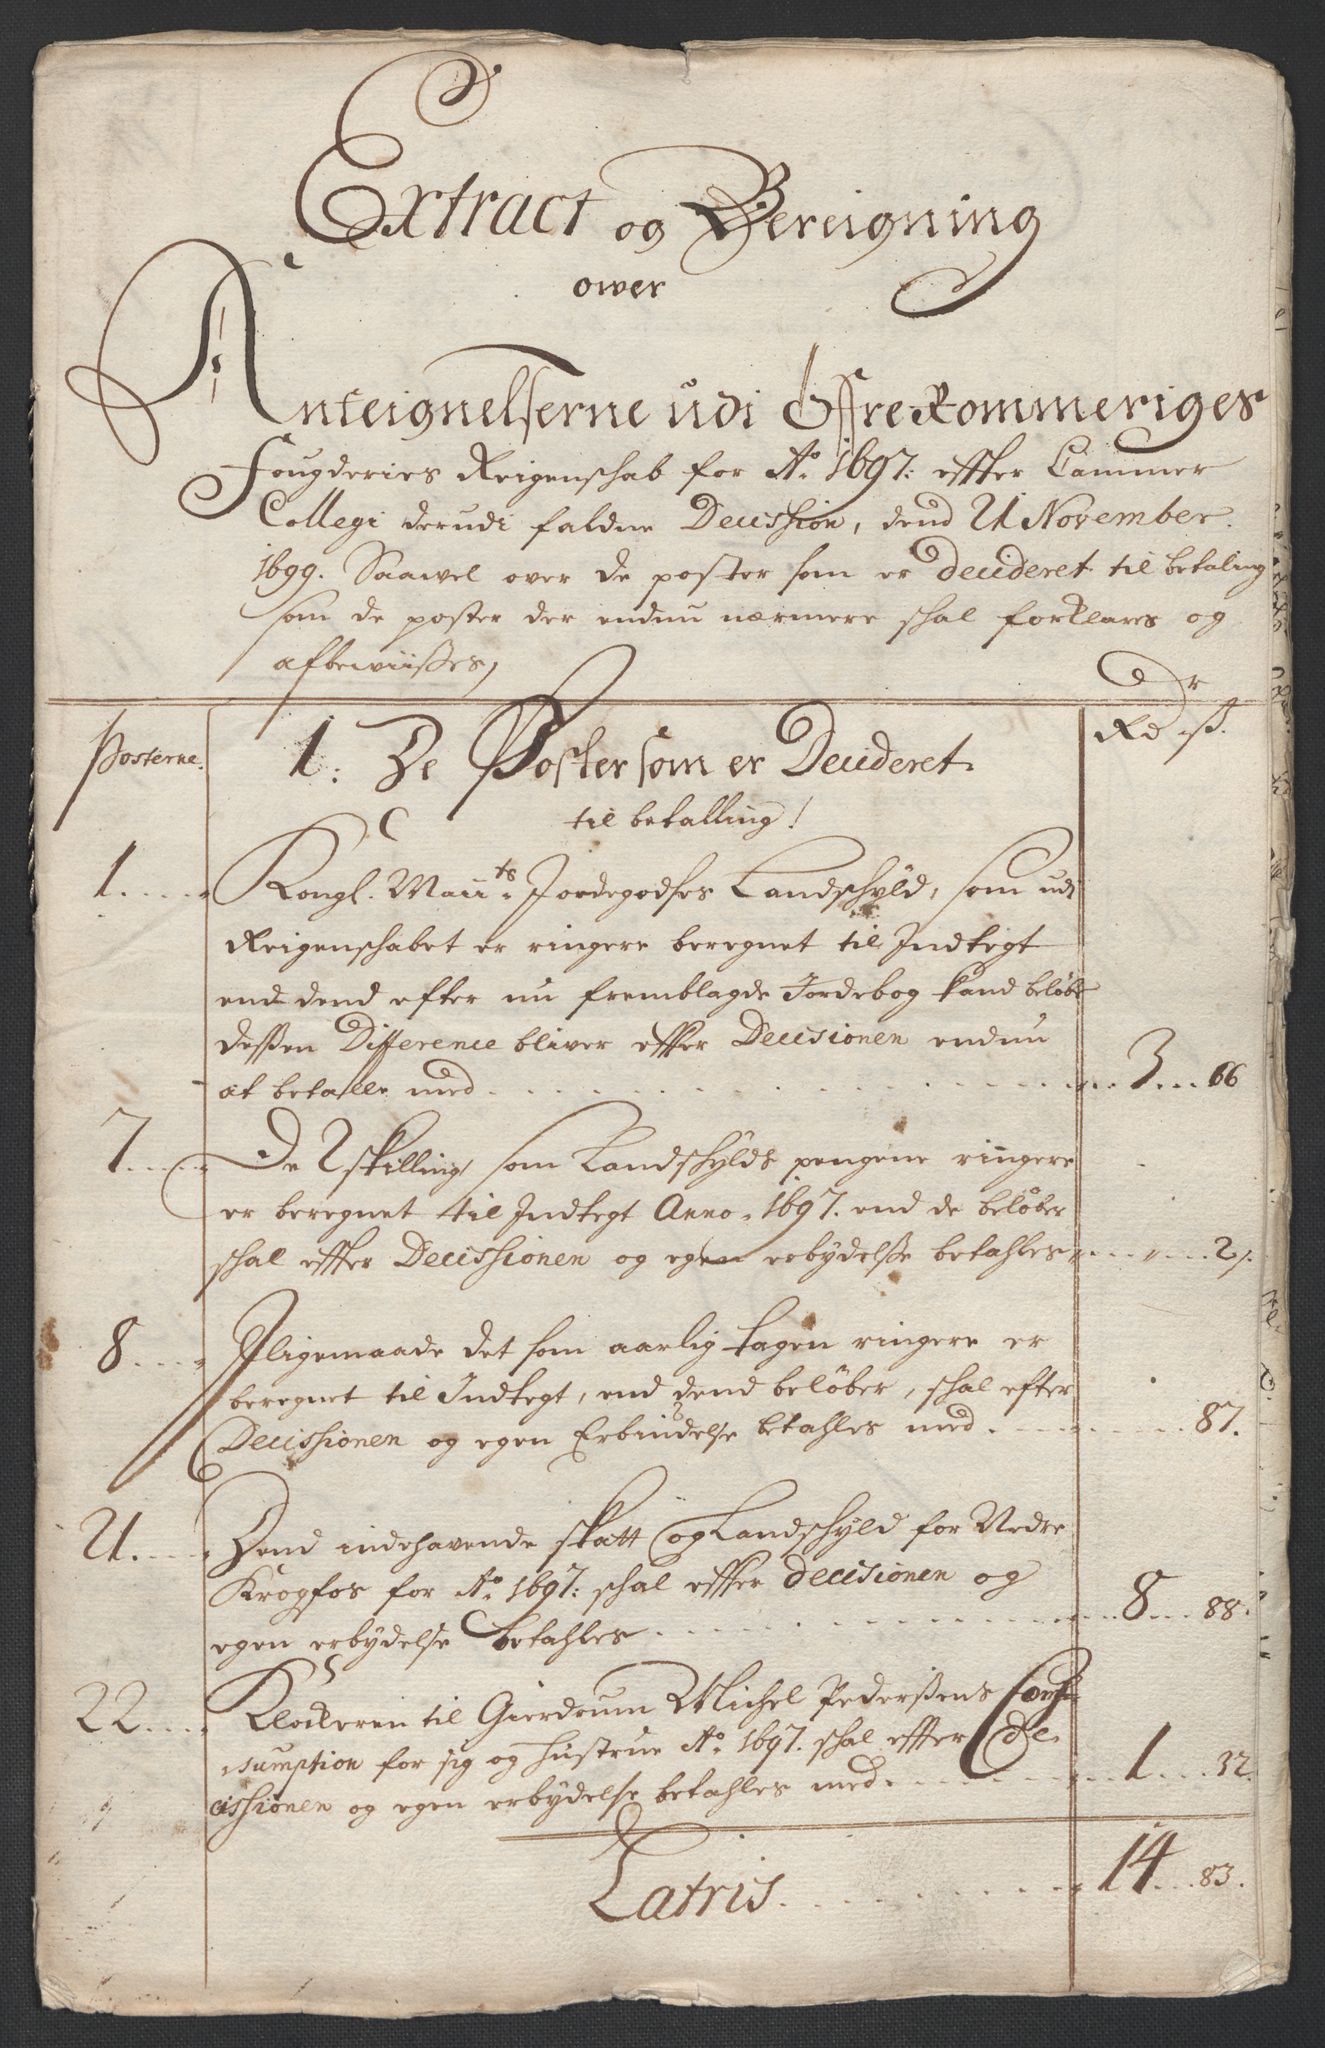 Extract og Bereigning
ower
Anteignelserne udi Øffre Rommeriges
Fougderies Reigenschab for Ao. 1697: effter Cammer
Collegi derudi faldne Decission, dend 21 November.
1699. Saawel over de poster som er Decideret til betaling
som de poster der endnu nærmere schal forklares og
afbewiisses,
Posterne.
1. De Poster som er Decideret
Rdr ß.
til betalling!
1. Kongl. Maiits. Jordegodses Landschyld, som udi
Reigenschabet er ringere beregnet til Indtegt
end dend efter nu fremblagde Jordebog kand beløbe
dessen Difference bliver effter Decisionen endnu
at betalle med 3 66
7 De 2 skilling som Landschylds pengene ringere
er beregnet til Indtegt Anno. 1697. end de beløber
schal effter Decissionen og egen erbydelse betahles „ „ 2.
8 Iligemaade det som aarlig tagen ringere er
beregnet til Indtegt, end dend beløber, schal efter
Decissionen og egen Erbiudelse betahles med 87.
21. Dend indehavende skatt og Landschyld for Nedre
Krogfos for Ao. 1697: schal effter Decisionen og
egen erbydelse betahles 8 88.
22. Klockeren til Gierdrum Michel Pederssens Con-
sumption for sig og hustrue Ao. 1697. schal effter De-
cissionen og egen erbydelse betahles med 1 32.
Latris 14 83.